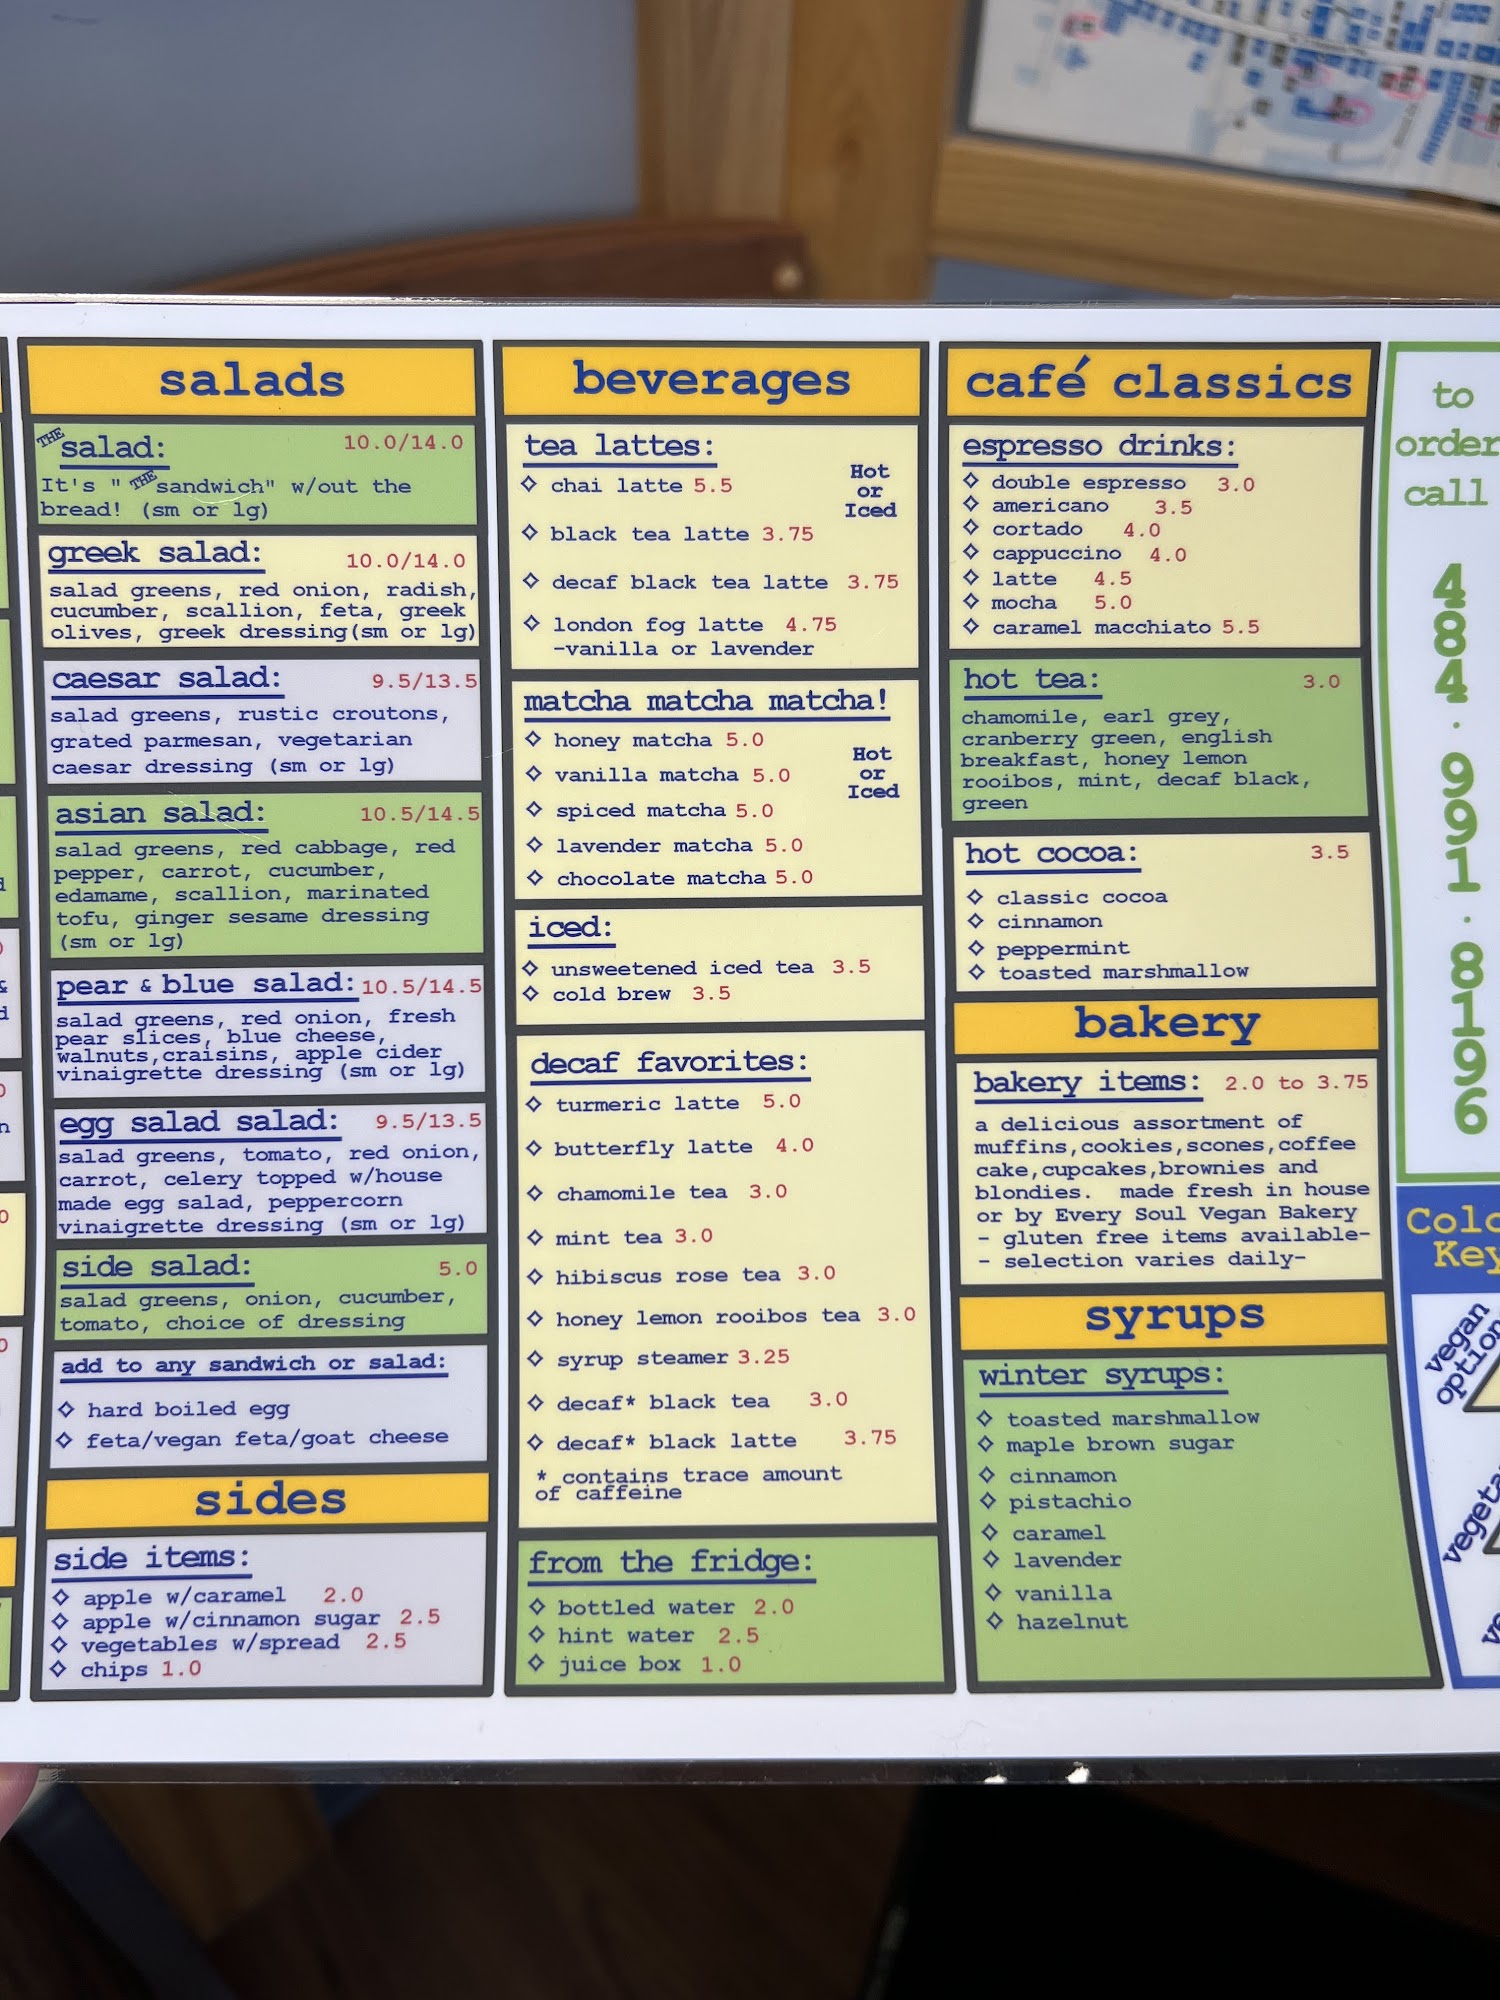 salads
THE salad: 10.0/14.0
It's "THE sandwich" w/out the
bread! (sm or lg)
greek salad: 10.0/14.0
salad greens, red onion, radish,
cucumber, scallion, feta, greek
olives, greek dressing(sm or lg)
caesar salad: 9.5/13.5
salad greens, rustic croutons,
grated parmesan, vegetarian
caesar dressing (sm or lg)
asian salad: 10.5/14.5
salad greens, red cabbage, red
pepper, carrot, cucumber,
edamame, scallion, marinated
tofu, ginger sesame dressing
(sm or lg)
pear & blue salad: 10.5/14.5
salad greens, red onion, fresh
pear slices, blue cheese,
walnuts,craisins, apple cider
vinaigrette dressing (sm or lg)
egg salad salad: 9.5/13.5
salad greens, tomato, red onion,
carrot, celery topped w/house
made egg salad, peppercorn
vinaigrette dressing (sm or lg)
side salad: 5.0
salad greens, onion, cucumber,
tomato, choice of dressing
add to any sandwich or salad:
◇ hard boiled egg
◇ feta/vegan feta/goat cheese
sides
side items:
◇ apple w/caramel 2.0
◇ apple w/cinnamon sugar 2.5
◇ vegetables w/spread 2.5
◇ chips 1.0
beverages
tea lattes:
Hot
or
Iced
◇ chai latte 5.5
◇ black tea latte 3.75
◇ decaf black tea latte 3.75
◇ london fog latte 4.75
-vanilla or lavender
matcha matcha matcha!
Hot
or
Iced
◇ honey matcha 5.0
◇ vanilla matcha 5.0
◇ spiced matcha 5.0
◇ lavender matcha 5.0
◇ chocolate matcha 5.0
iced:
◇ unsweetened iced tea 3.5
◇ cold brew 3.5
decaf favorites:
◇ turmeric latte 5.0
◇ butterfly latte 4.0
◇ chamomile tea 3.0
◇ mint tea 3.0
◇ hibiscus rose tea 3.0
◇ honey lemon rooibos tea 3.0
◇ syrup steamer 3.25
◇ decaf* black tea 3.0
◇ decaf* black latte 3.75
* contains trace amount
of caffeine
from the fridge:
◇ bottled water 2.0
◇ hint water 2.5
◇ juice box 1.0
café classics
espresso drinks:
◇ double espresso 3.0
◇ americano 3.5
◇ cortado 4.0
◇ cappuccino 4.0
◇ latte 4.5
◇ mocha 5.0
◇ caramel macchiato 5.5
hot tea: 3.0
chamomile, earl grey,
cranberry green, english
breakfast, honey lemon
rooibos, mint, decaf black,
green
hot cocoa: 3.5
◇ classic cocoa
◇ cinnamon
◇ peppermint
◇ toasted marshmallow
bakery
bakery items: 2.0 to 3.75
a delicious assortment of
muffins,cookies,scones,coffee
cake,cupcakes,brownies and
blondies. made fresh in house
or by Every Soul Vegan Bakery
- gluten free items available-
- selection varies daily-
syrups
winter syrups:
◇ toasted marshmallow
◇ maple brown sugar
◇ cinnamon
◇ pistachio
◇ caramel
◇ lavender
◇ vanilla
◇ hazelnut
to
order
call
484.991.8196
Key
vegan
option